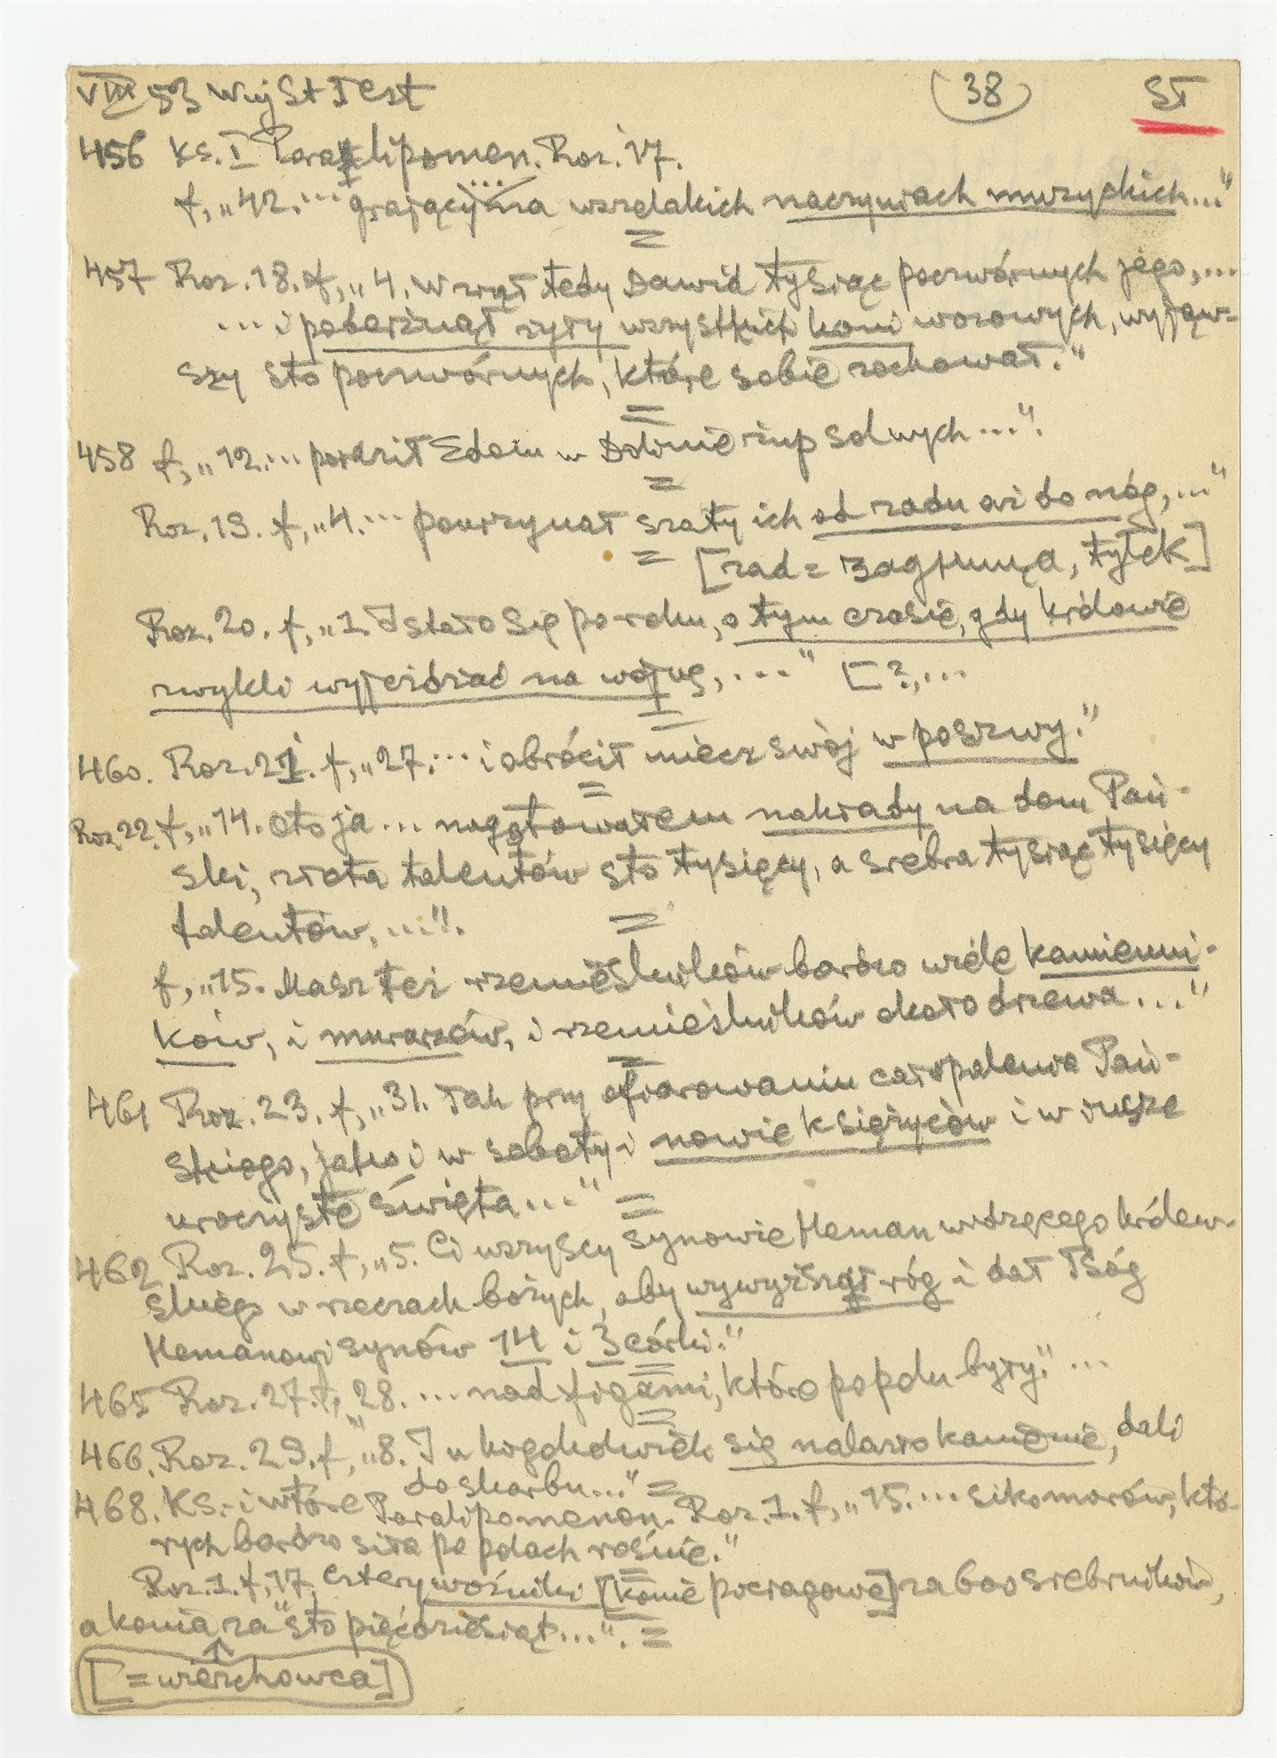 VIII 53 Wuj St Test (38) ST
456 Ks. I Paralipomen. Roz. 17.
f, „42.... grający na wszelakich naczyniach muzyckich..."
457 Roz. 18. f, „4. Wziął tedy Dawid tysiąc poczwórnych jego,...
... i poderżnął żyły wszystkich koni wozowych, wyjąw-
szy sto poczwórnych, które sobie zachował."
458 f, „12.... poraził Edom w Dolinie żup solnych...".
Roz. 19. f, „4.... pourzynał szaty ich od zadu aż do nóg,..."
[zad = tyłek]
Roz. 20. f, „1. I stało się po roku, o tym czasie, gdy królowie
zwykli wyjeżdżać na wojnę,..." [?,...
460. Roz. 21. f, „27.... i obrócił miecz swój w poszwy."
Roz. 22. f, „14. Oto ja... nagotowałem nakłady na dom Pań-
ski, złota talentów sto tysięcy, a srebra tysiąc tysięcy
talentów,...".
f, „15. Masz też rzemieślników bardzo wiele kamienni-
ków, i murarzów, i rzemieślników około drzewa..."
461 Roz. 23. f, „31. Tak przy ofiarowaniu całopalenia Pań-
skiego, jako i w soboty i nowie księżyców i w insze
uroczyste święta..."
462 Roz. 25. f, „5. Ci wszyscy synowie Heman widzącego królew-
skiego w rzeczach bożych, aby wywyższał róg i dał Bóg
Hemanowi synów 14 i 3 córki."
465 Roz. 27. f, „28.... nad figami, które po polu były."...
466. Roz. 29. f, „8. I u kogokolwiek się nalazło kamienie, dali
do skarbu..."
468. Ks. wtóre Paralipomenon. Roz. 1. f, „15.... sikomorów, któ-
rych bardzo siła po polach rośnie."
Roz. 1. f, 17. cztery woźniki [konie pociągowe] za 600 srebrników,
a konia za sto pięćdziesiąt...".
[= wierzchowca]